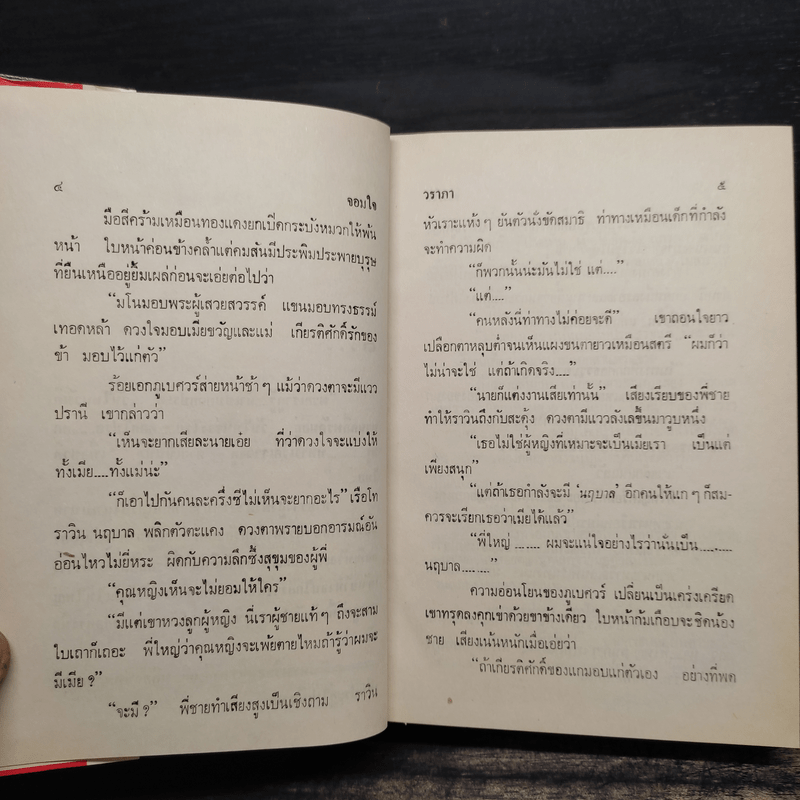 ๔
จอมใจ
มือสีคร้ามเหมือนทองแดงยกเปิดกระบังหมวกให้พ้น
หน้า ใบหน้าค่อนข้างคล้ำแต่คมสันมีประพิมประพายบุรุษ
ที่ยืนเหนืออยู่ยิ้มเผล่ก่อนจะเอ่ยต่อไปว่า
“มโนมอบพระผู้เสวยสวรรค์ แขนมอบทรงธรรม์
เทอดหล้า ดวงใจมอบเมียขวัญและแม่ เกียรติศักดิ์รักของ
ข้า มอบไว้แก่ตัว”
ร้อยเอกภูเบศวร์ส่ายหน้าช้าๆ แม้ว่าดวงตาจะมีแวว
ปรานี เขากล่าวว่า
“เห็นจะยากเสียละนายเอ๋ย ที่ว่าดวงใจจะแบ่งให้
ทั้งเมีย....ทั้งแม่น่ะ”
“ก็เอาไปกันคนละครึ่งซีไม่เห็นจะยากอะไร” เรือโท
ราวิน นฤบาล พลิกตัวตะแคง ดวงตาพรายบอกอารมณ์อัน
อ่อนไหวไม่ยี่หระ ผิดกับความลึกซึ้งสุขุมของผู้พี่
“คุณหญิงเห็นจะไม่ยอมให้ใคร”
“มีแต่เขาหวงลูกผู้หญิง นี่เราผู้ชายแท้ๆ ถึงจะสาม
ใบเถาก็เถอะ พี่ใหญ่ว่าคุณหญิงจะเพ้ยตายไหมถ้ารู้ว่าผมจะ
มีเมีย ?”
“จะมี ?” พี่ชายทำเสียงสูงเป็นเชิงถาม ราวิน
วราภา
๕
หัวเราะแห้งๆ ยันตัวนั่งขัดสมาธิ ท่าทางเหมือนเด็กที่กำลัง
จะทำความผิด
“ก็พวกนั้นน่ะมันไม่ใช่ แต่....”
“แต่....”
“คนหลังนี่ท่าทางไม่ค่อยจะดี” เขาถอนใจยาว
เปลือกตาหลุบต่ำจนเห็นแผงขนตายาวเหมือนสตรี “ผมก็ว่า
ไม่น่าจะใช่ แต่ถ้าเกิดจริง....”
“นายก็แต่งงานเสียเท่านั้น” เสียงเรียบของพี่ชาย
ทำให้ราวินถึงกับสะดุ้ง ดวงตามีแววลังเลขึ้นมาวูบหนึ่ง
“เธอไม่ใช่ผู้หญิงที่เหมาะจะเป็นเมียเรา เป็นแต่
เพียงสนุก”
“แต่ถ้าเธอกำลังจะมี ‘นฤบาล’ อีกคนให้แกๆ ก็สม-
ควรจะเรียกเธอว่าเมียได้แล้ว”
“พี่ใหญ่ ........ ผมจะแน่ใจอย่างไรว่านั่นเป็น..........
นฤบาล........”
ความอ่อนโยนของภูเบศวร์ เปลี่ยนเป็นเคร่งเครียด
เขาทรุดลงคุกเข่าด้วยขาข้างเดียว ใบหน้าก้มเกือบจะชิดน้อง
ชาย เสียงเน้นหนักเมื่อเอ่ยว่า
“ถ้าเกียรติศักดิ์ของแกมอบแก่ตัวเอง อย่างที่พูด